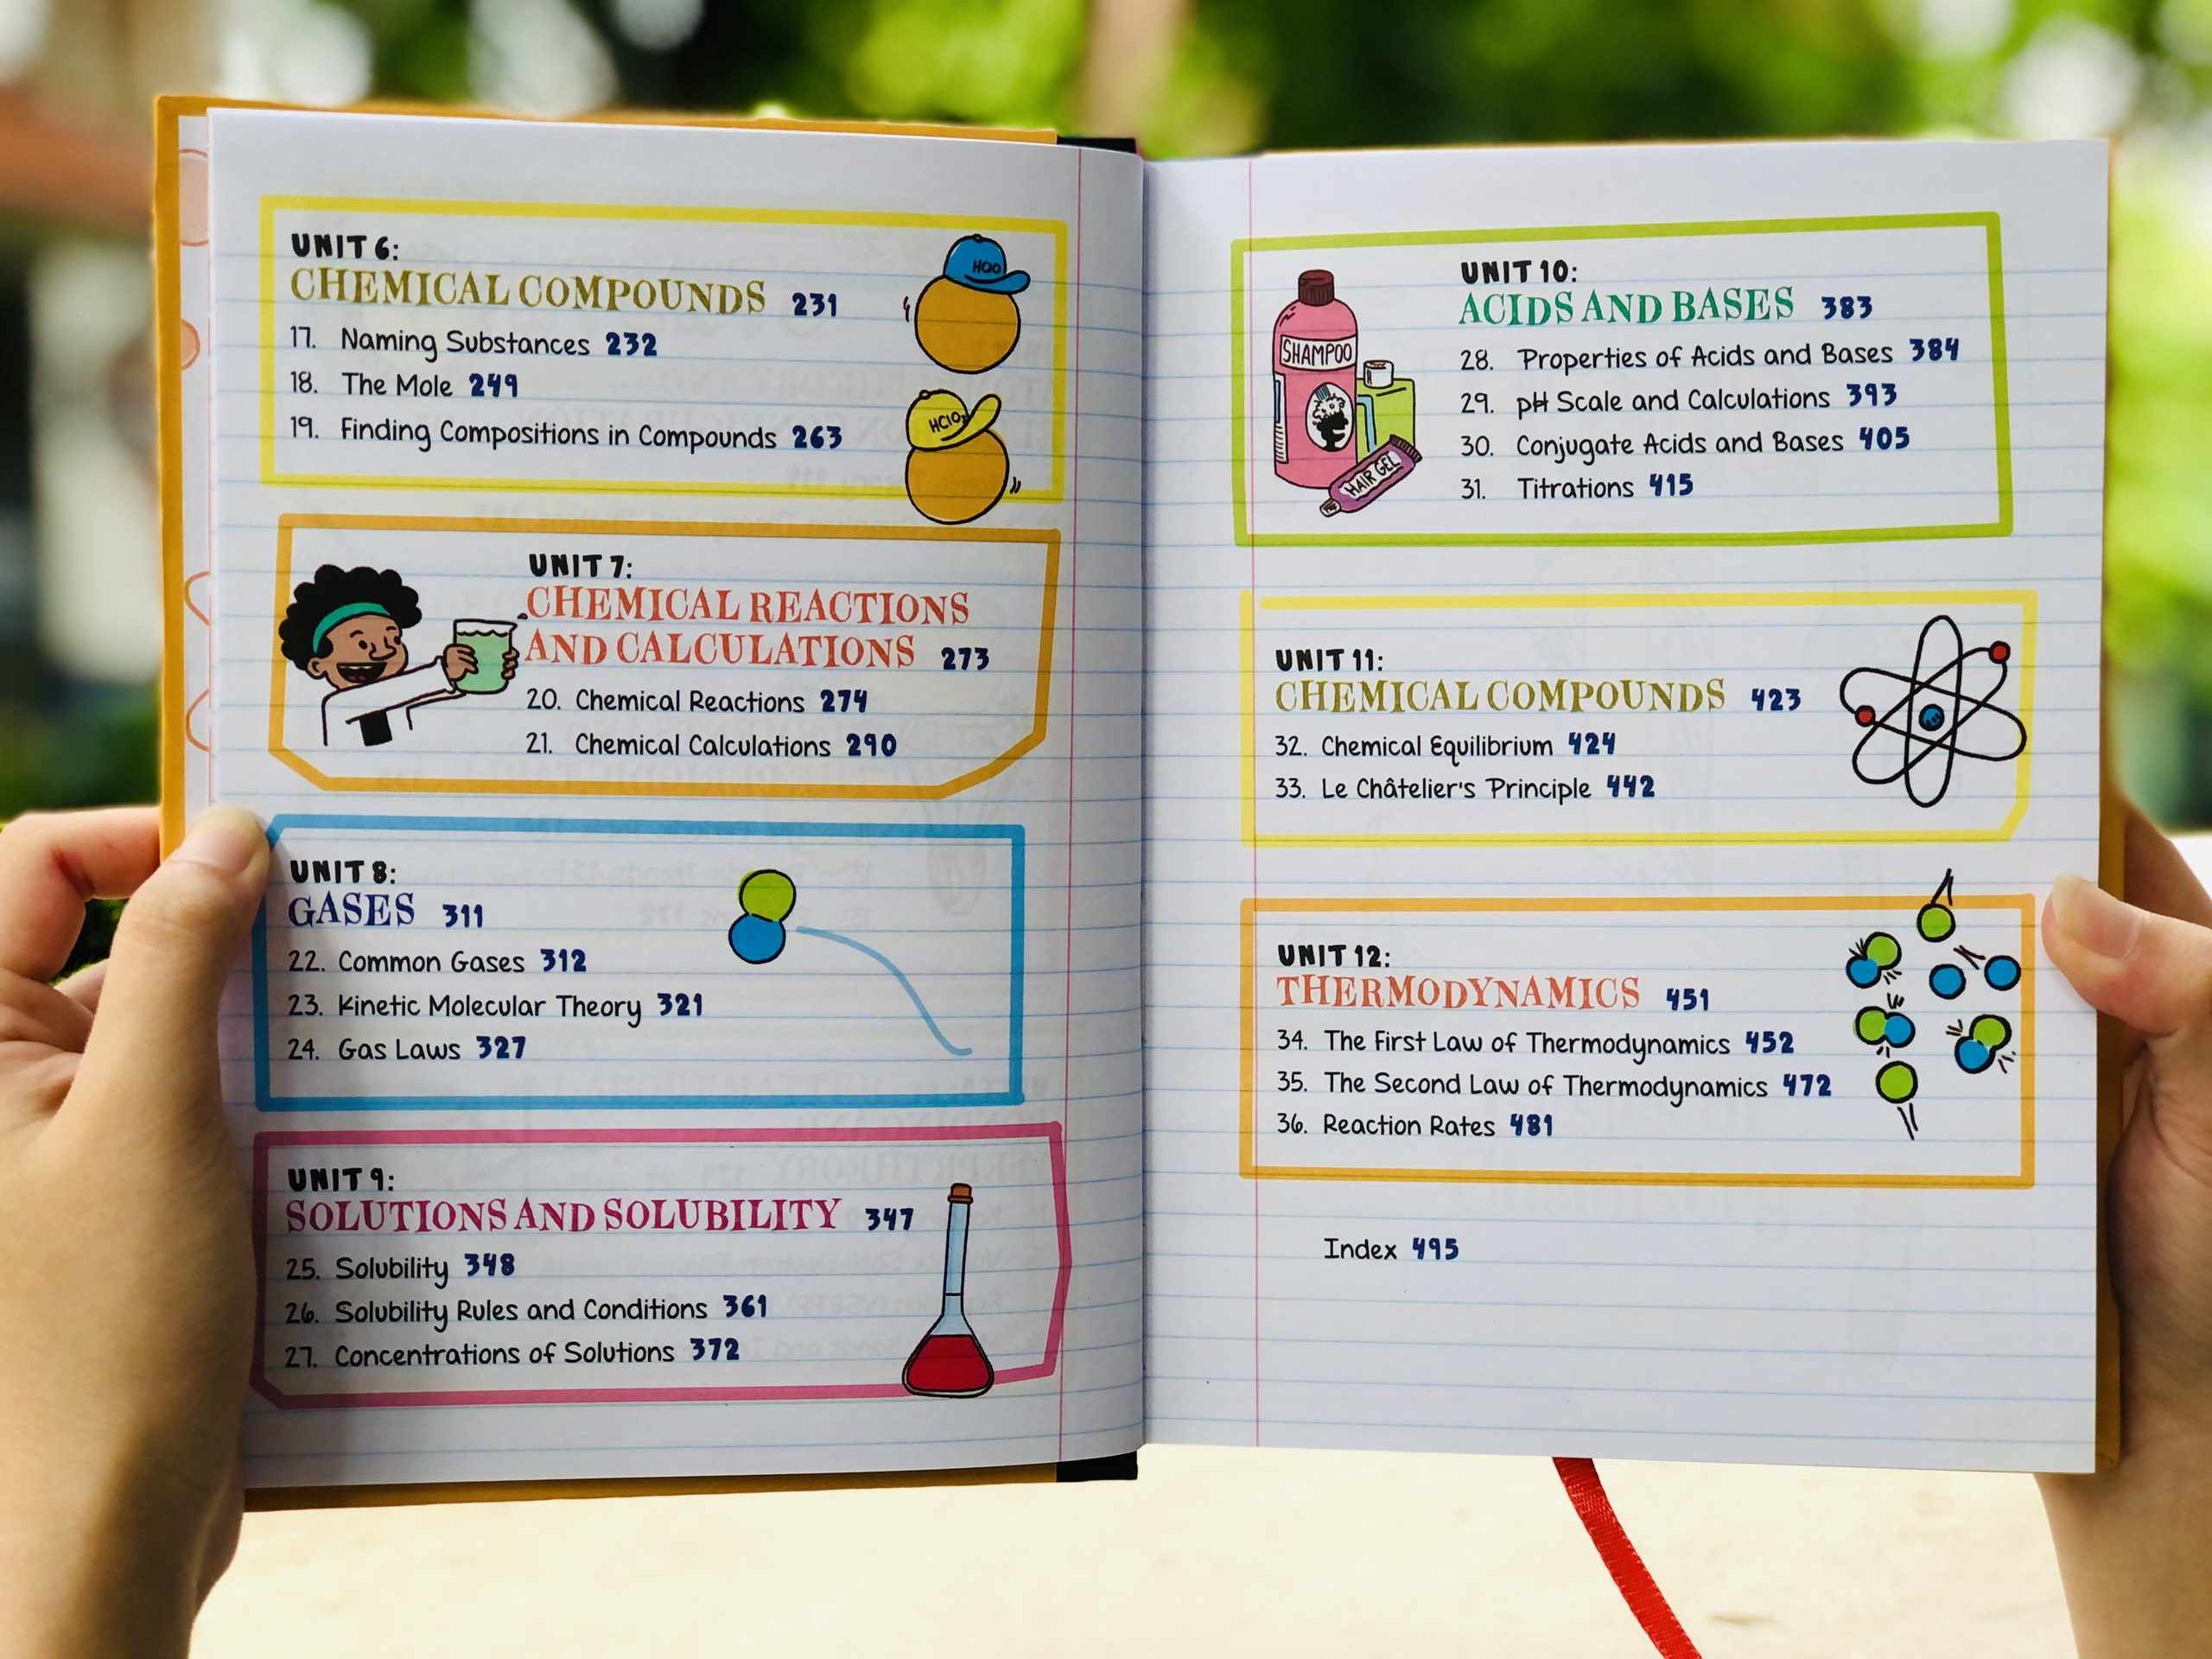 UNIT 6:
CHEMICAL COMPOUNDS 231
17. Naming Substances 232
18. The Mole 249
19. Finding Compositions in Compounds 263
HClO
UNIT 7:
CHEMICAL REACTIONS
AND CALCULATIONS 273
20. Chemical Reactions 274
21. Chemical Calculations 290
UNIT 8:
GASES 311
22. Common Gases 312
23. Kinetic Molecular Theory 321
24. Gas Laws 327
UNIT 9:
SOLUTIONS AND SOLUBILITY 347
25. Solubility 348
26. Solubility Rules and Conditions 361
27. Concentrations of Solutions 372
UNIT 10:
ACIDS AND BASES 383
28. Properties of Acids and Bases 384
29. pH Scale and Calculations 393
30. Conjugate Acids and Bases 405
31. Titrations 415
SHAMPOO
HAIR GEL
UNIT 11:
CHEMICAL COMPOUNDS 423
32. Chemical Equilibrium 424
33. Le Châtelier's Principle 442
UNIT 12:
THERMODYNAMICS 451
34. The First Law of Thermodynamics 452
35. The Second Law of Thermodynamics 472
36. Reaction Rates 481
Index 495